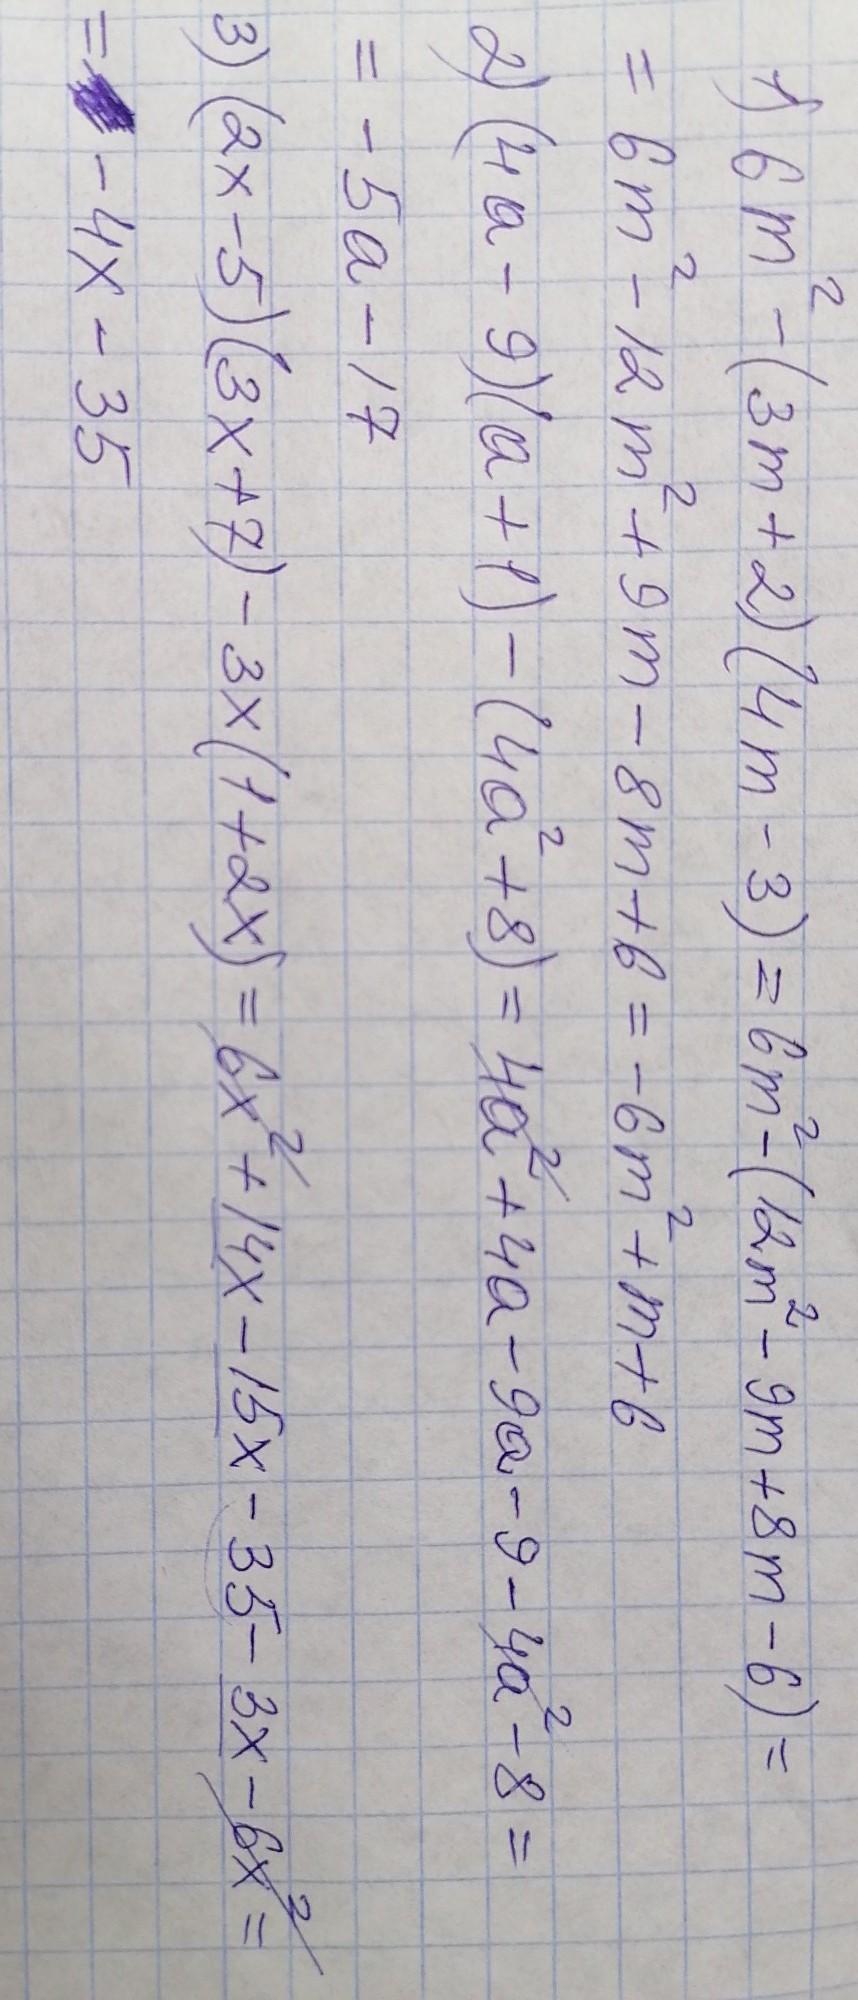 1) 6m² - (3m + 2)(4m - 3) = 6m² - (12m² - 9m + 8m - 6) =
= 6m² - 12m² + 9m - 8m + 6 = -6m² + m + 6
2) (4a - 9)(a + 1) - (4a² + 8) = 4a² + 4a - 9a - 9 - 4a² - 8 =
= -5a - 17
3) (2x - 5)(3x + 7) - 3x(1 + 2x) = 6x² + 14x - 15x - 35 - 3x - 6x² =
= -4x - 35